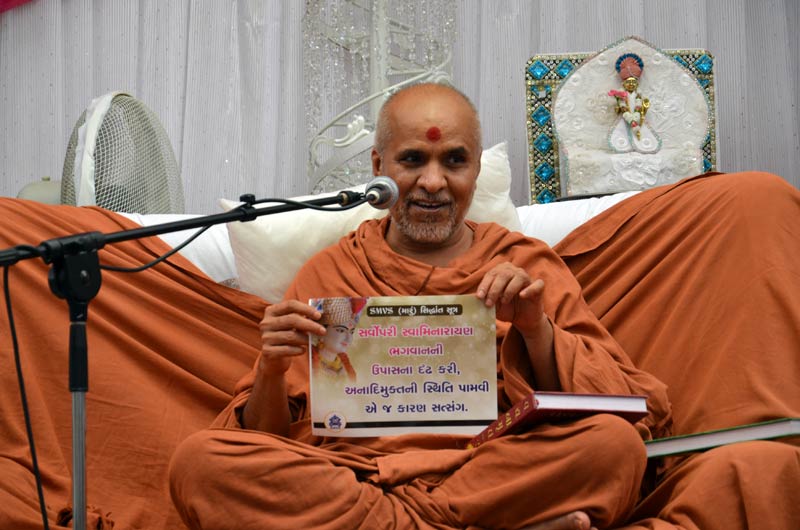 SMVS (મારું) સિદ્ધાંત સૂત્ર
સર્વોપરી સ્વામિનારાયણ
ભગવાનની
ઉપાસના દૃઢ કરી,
અનાદિમુક્તની સ્થિતિ પામવી
એ જ કારણ સત્સંગ.